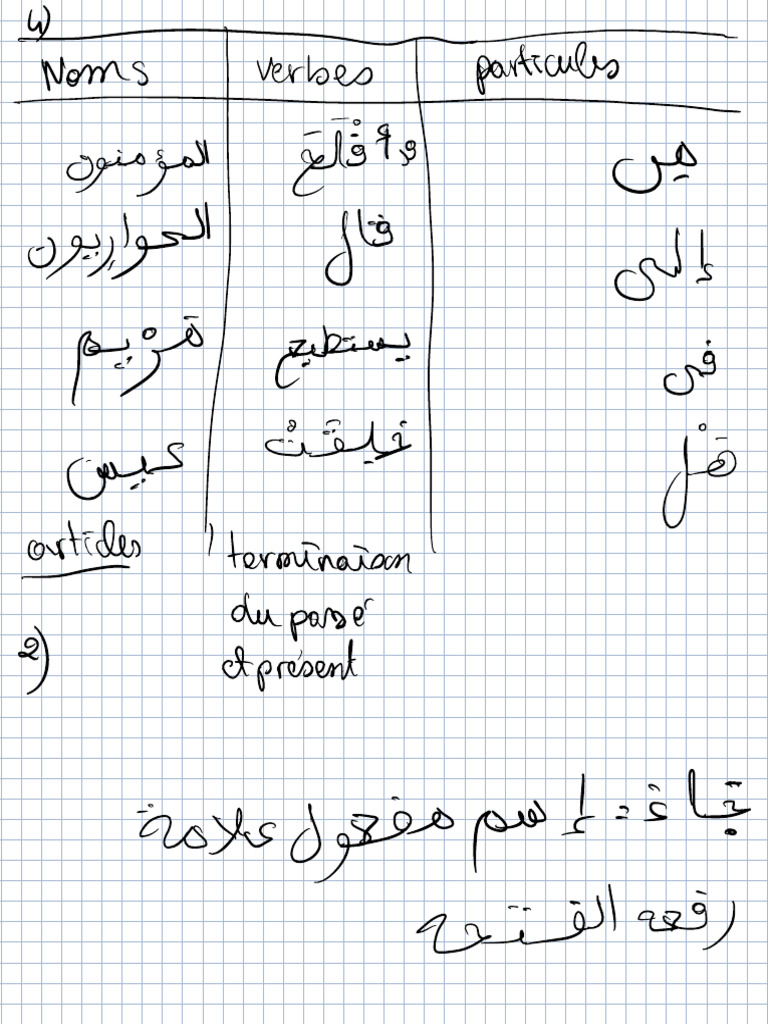 1)
Noms verbes particules
المؤمنون من
الحواريون قال إلى
مريم يستطيع في
عيسى هل
articles terminaison
du passé
2)
et présent
إسم مفعول علامة
رفعه الفتحة